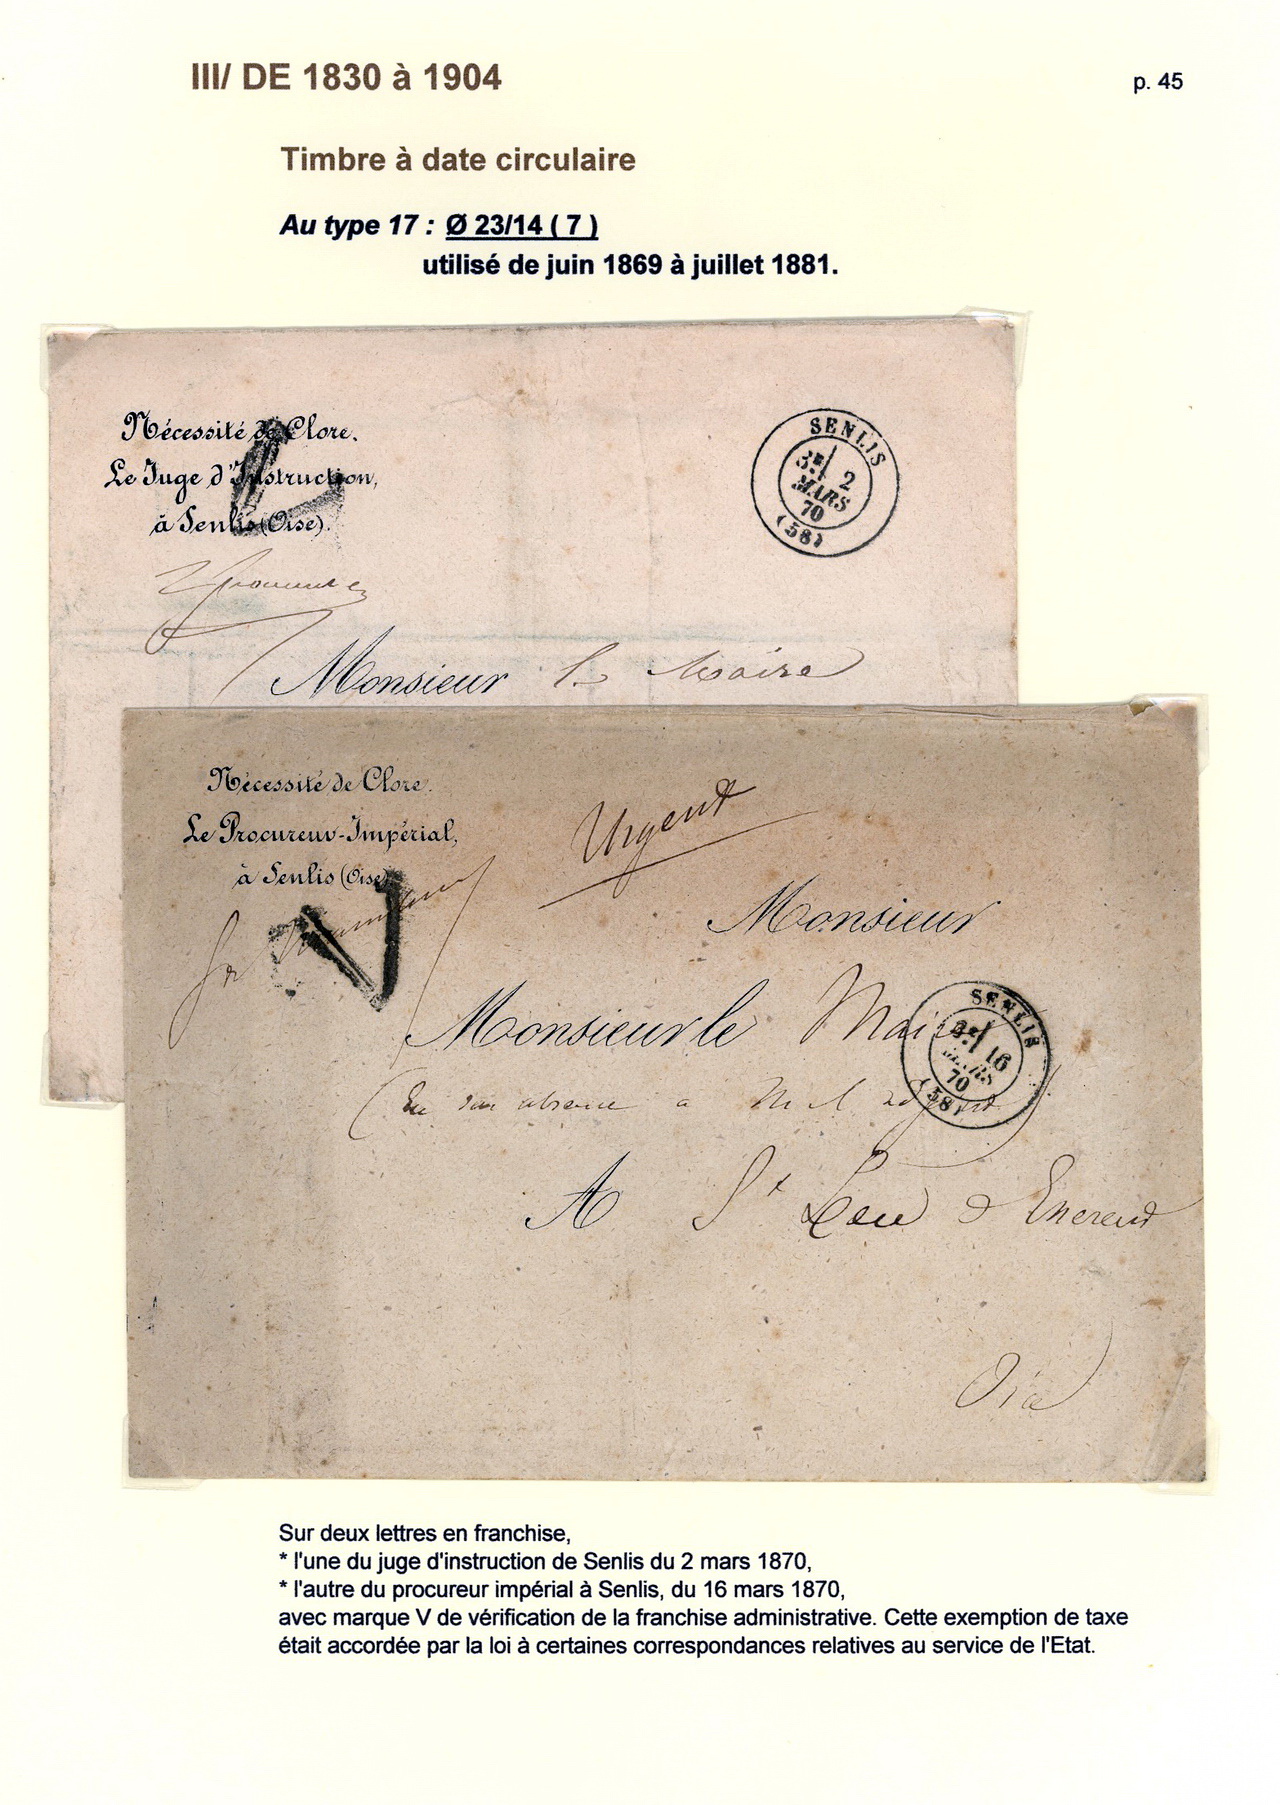 III/ DE 1830 à 1904
p. 45
Timbre à date circulaire
Au type 17 : Ø 23/14 ( 7 )
utilisé de juin 1869 à juillet 1881.
Nécessité de Clore.
Le Juge d'Instruction,
à Senlis (Oise).
SENLIS
3E 2
MARS
70
(58)
Monsieur le Maire
Nécessité de Clore.
Le Procureur-Impérial,
à Senlis (Oise)
V
Urgent
Monsieur
Monsieur le Maire
SENLIS
3E 16
MARS
70
(58)
(En son absence à M. l'adjoint)
A St Leu d'Esserent
Oise
Sur deux lettres en franchise,
* l'une du juge d'instruction de Senlis du 2 mars 1870,
* l'autre du procureur impérial à Senlis, du 16 mars 1870,
avec marque V de vérification de la franchise administrative. Cette exemption de taxe
était accordée par la loi à certaines correspondances relatives au service de l'Etat.